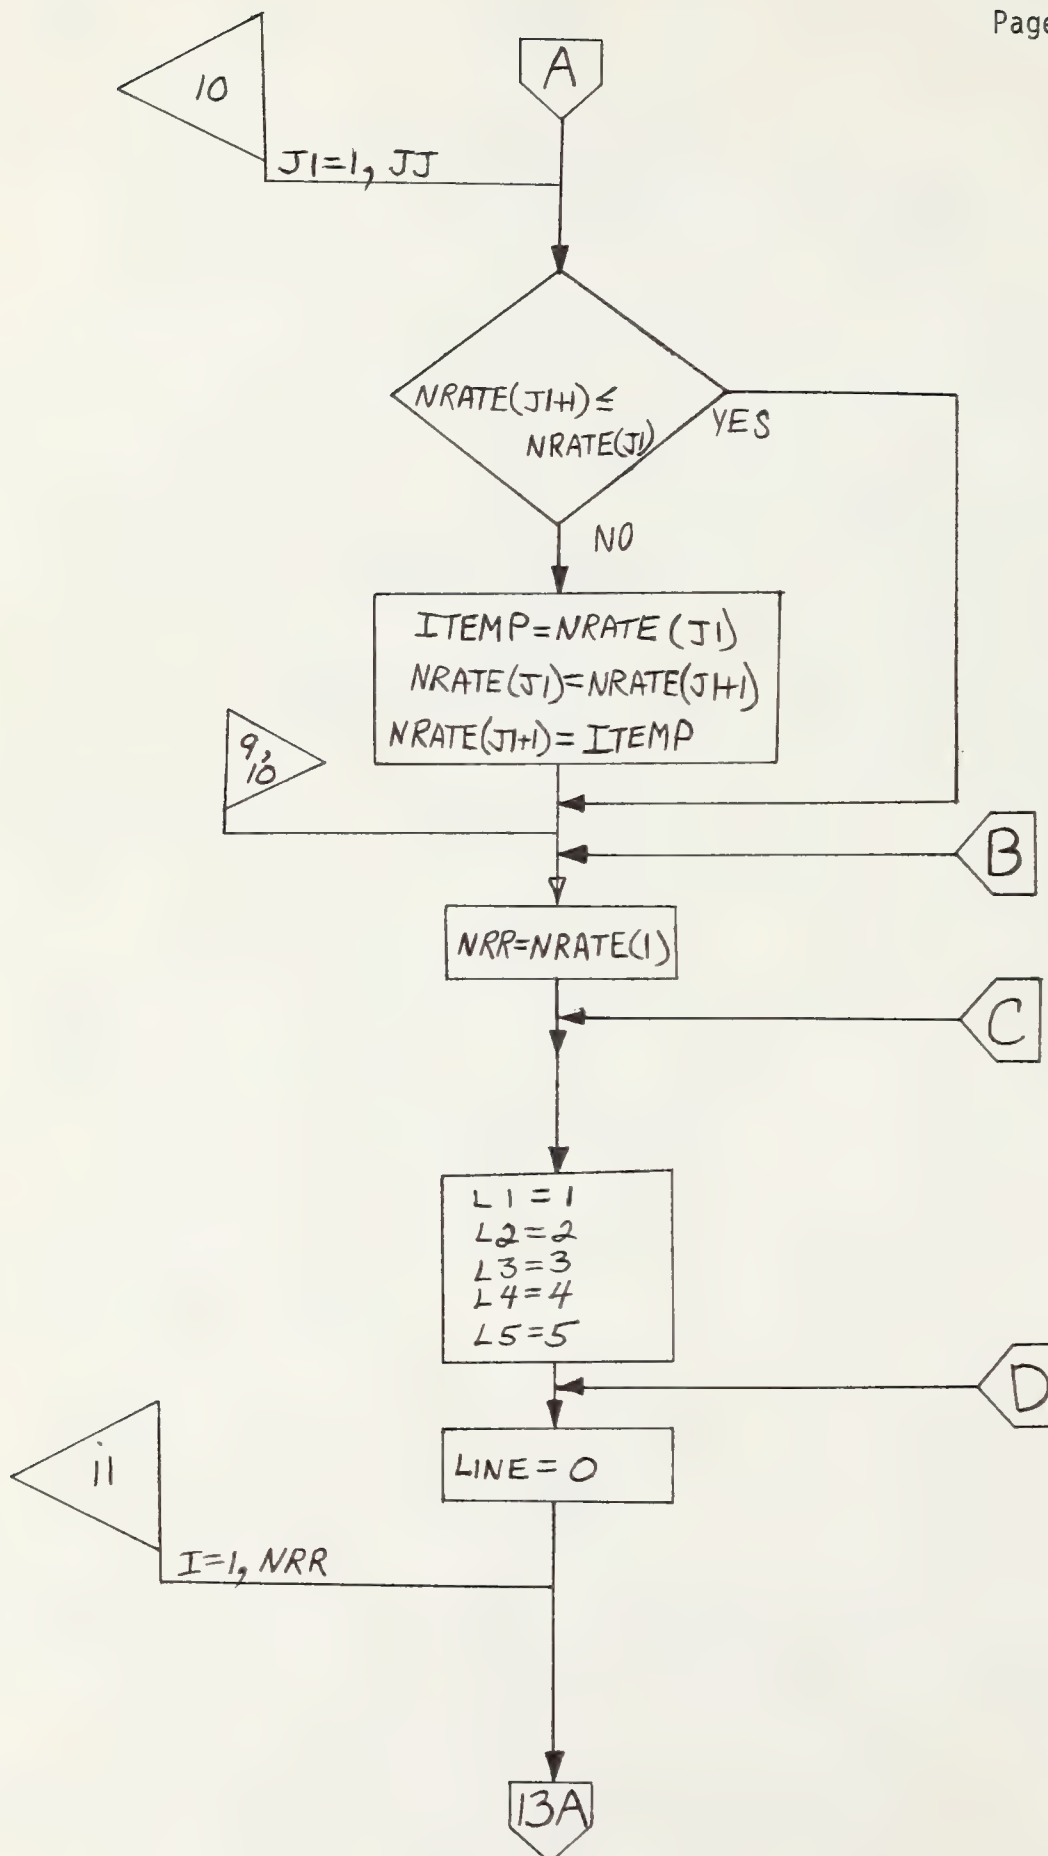 Page
10
A
J1=1, JJ
NRATE(J1+1)≤
NRATE(J1)
YES
NO
ITEMP=NRATE(J1)
NRATE(J1)=NRATE(J1+1)
NRATE(J1+1)=ITEMP
9,
10
B
NRR=NRATE(1)
C
L1=1
L2=2
L3=3
L4=4
L5=5
D
LINE=0
11
I=1, NRR
13A